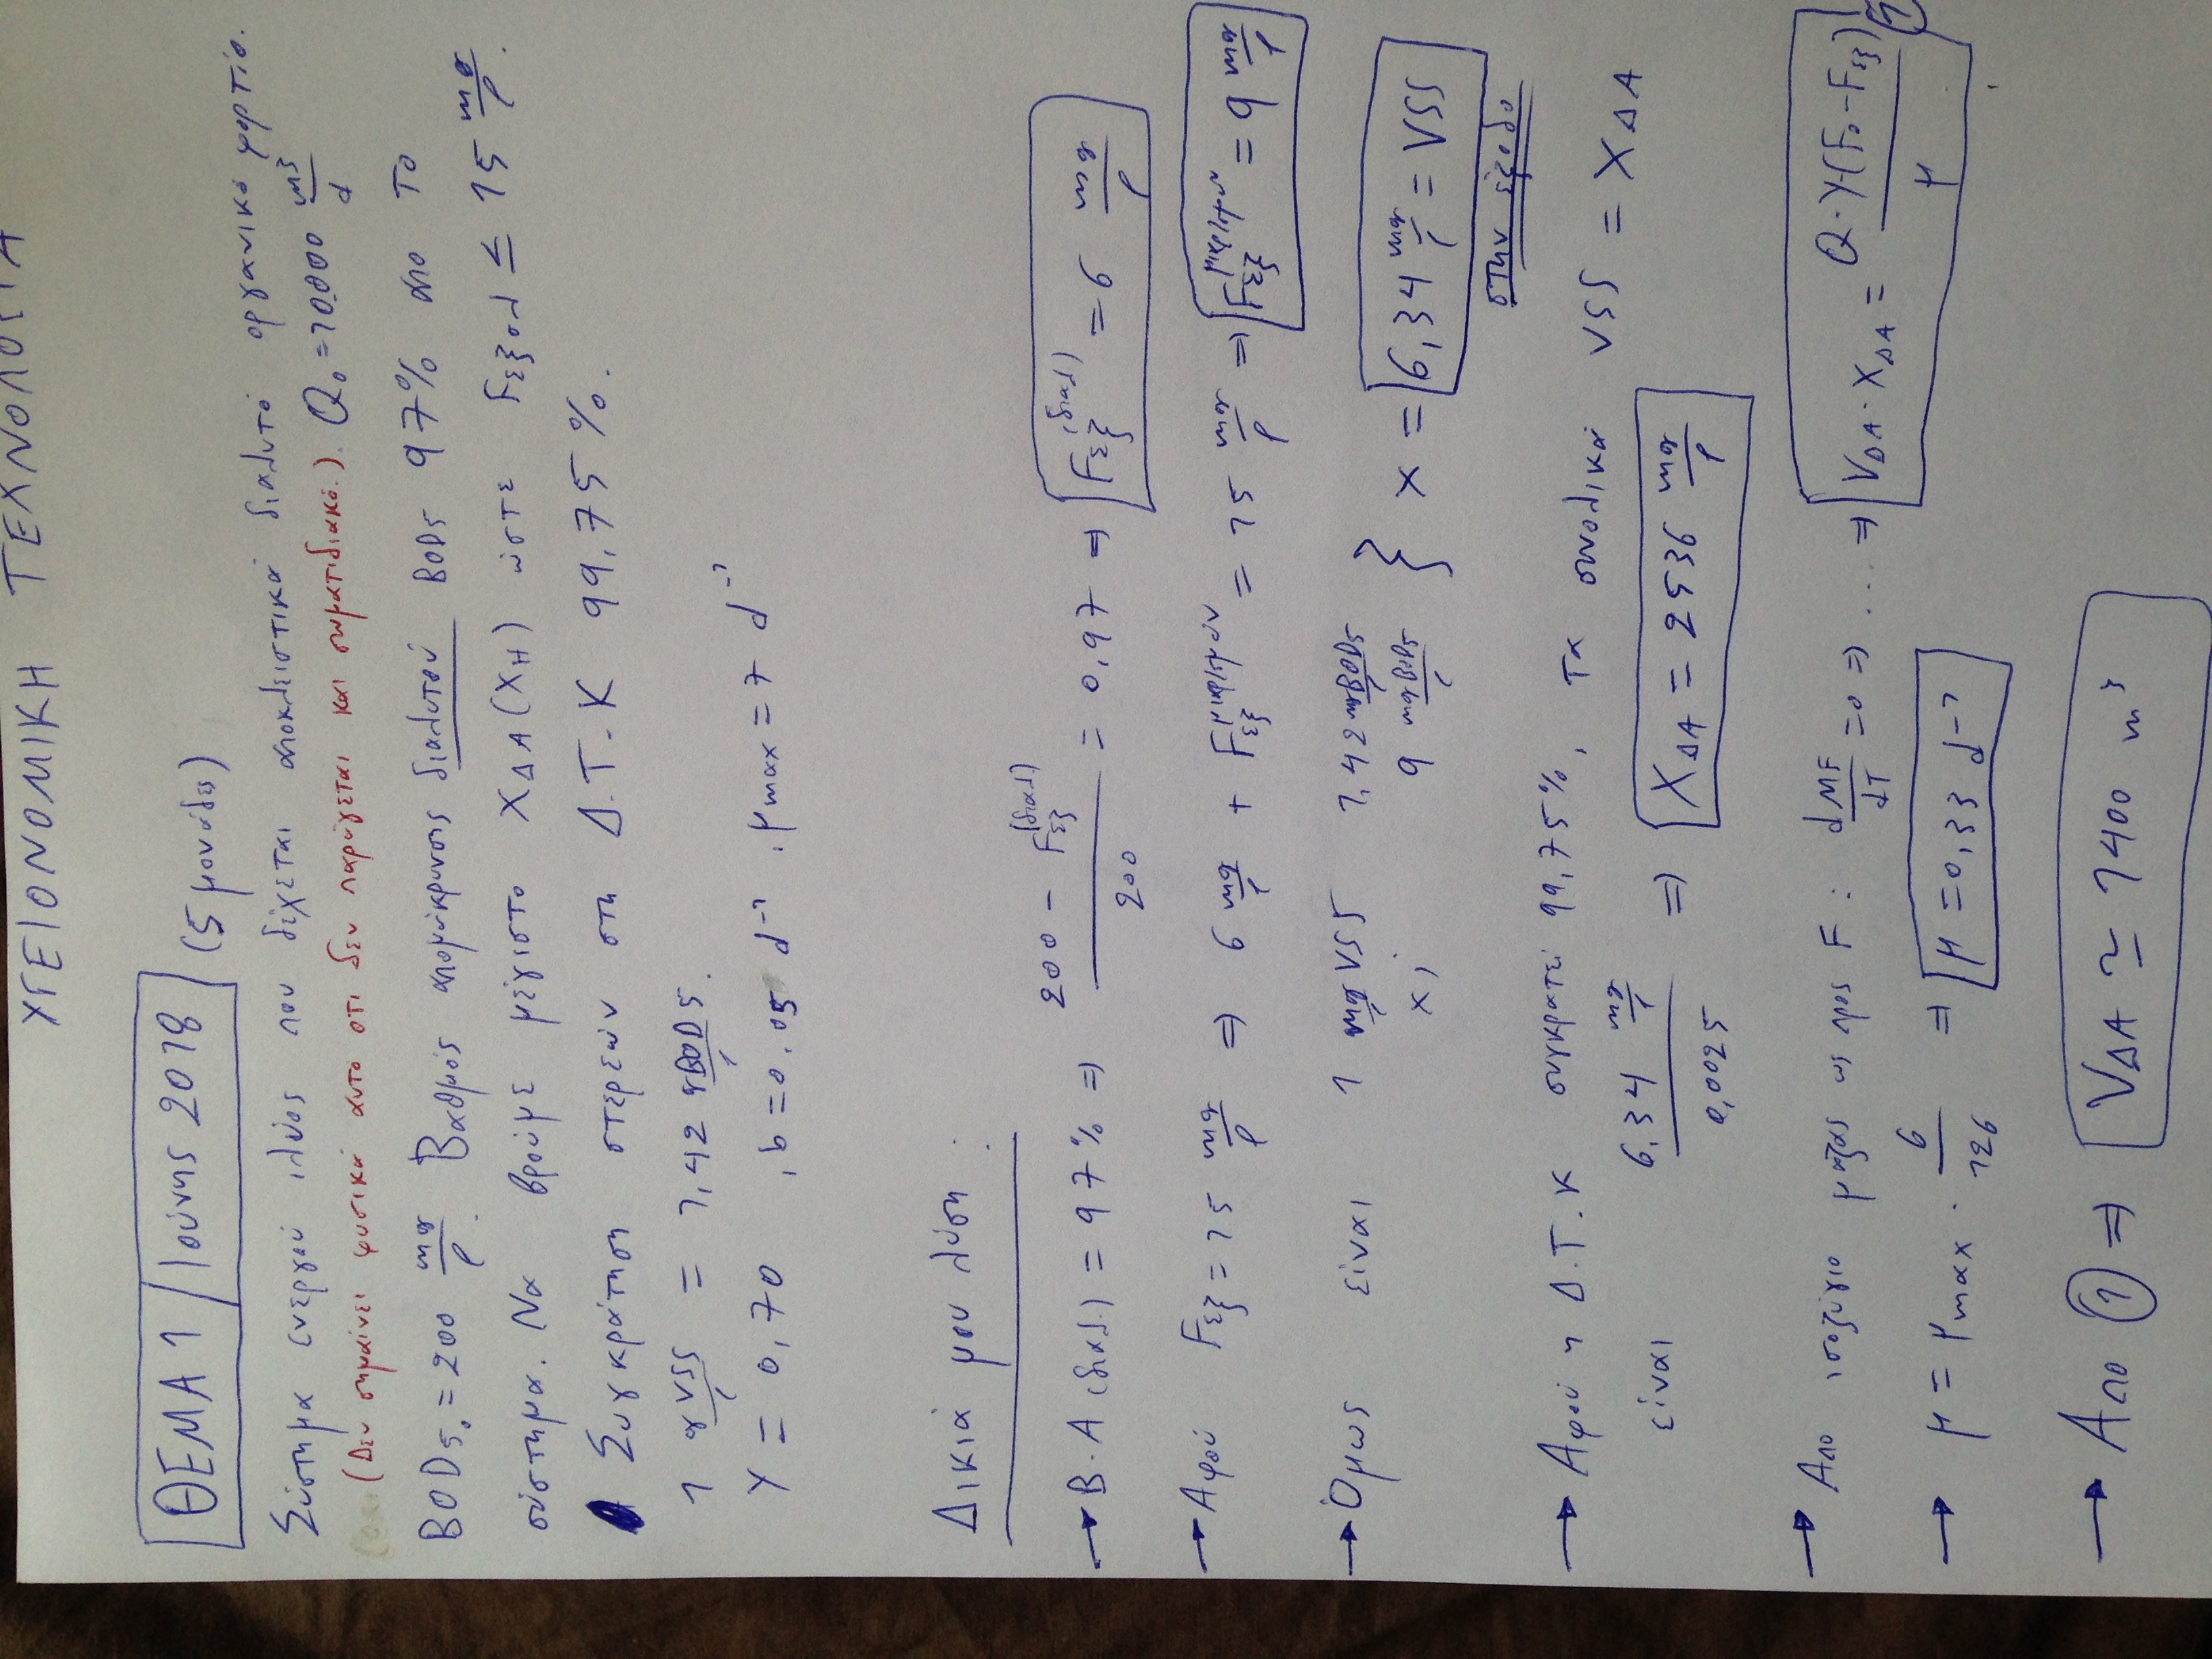 ΥΓΕΙΟΝΟΜΙΚΗ ΤΕΧΝΟΛΟΓΙΑ
ΘΕΜΑ 1 / Ιούνης 2018 (5 μονάδες)
Σύστημα ενεργού ιλύος που δέχεται αποκλειστικά διαλυτό οργανικό φορτίο.
(Δεν σημαίνει φυσικά αυτό ότι δεν παράγεται και σωματιδιακό.). Q₀ = 10.000 m³/d
BOD₅₀ = 200 mg/l. Βαθμός απομάκρυνσης διαλυτού BOD₅ 97% από το
σύστημα. Να βρούμε μέγιστο XΔΑ (XH) ώστε Fεξολ ≤ 15 mg/l.
Συγκράτηση στερεών στη Δ.Τ.Κ 99,75%.
1 gVSS/l = 1,42 gBOD5/l.
Y = 0,70 , b = 0,05 d⁻¹ , μmax = 7 d⁻¹
Δικιά μου λύση:
→ Β.Α (διαλ.) = 97% ⇒ (200 - Fεξ(διαλ))/200 = 0,97 ⇒ Fεξ(διαλ) = 6 mg/l
→ Αφού Fεξ = 15 mg/l ⇒ 6 mg/l + Fεξ μικρ/σμών = 15 mg/l ⇒ Fεξ μικρ/σμών = 9 mg/l
→ Όμως είναι 1 mgVSS 1,42 mgBOD5/l
x; 9 mgBOD5/l } x = 6,34 mg/l = VSS
στην έξοδο
→ Αφού η Δ.Τ.Κ συγκρατεί 99,75%, τα συνολικά VSS = XΔΑ
είναι 6,34 mg/l / 0,0025 ⇒ XΔΑ = 2536 mg/l
→ Από ισοζύγιο μάζας ως προς F: dMF/dT = 0 ⇒ ... ⇒ VΔΑ · XΔΑ = Q · Y(F₀ - Fεξ)/μ (1)
→ μ = μmax · 6/126 ⇒ μ = 0,33 d⁻¹
→ Από (1) ⇒ VΔΑ ≃ 1400 m³